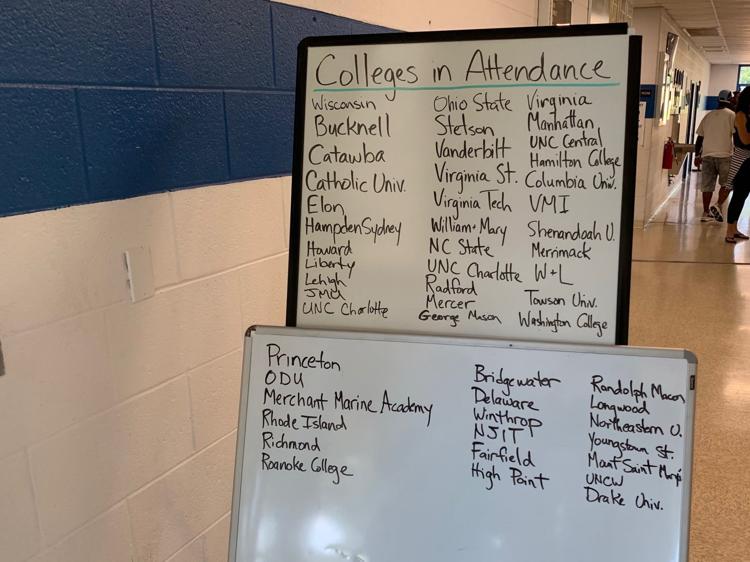 Colleges in Attendance
Wisconsin
Bucknell
Catawba
Catholic Univ.
Elon
Hampden Sydney
Howard
Liberty
Lehigh
JMU
UNC Charlotte
Ohio State
Stetson
Vanderbilt
Virginia St.
Virginia Tech
William + Mary
NC State
UNC Charlotte
Radford
Mercer
George Mason
Virginia
Manhattan
UNC Central
Hamilton College
Columbia Univ.
VMI
Shenandoah U.
Merrimack
W+L
Towson Univ.
Washington College
Princeton
ODU
Merchant Marine Academy
Rhode Island
Richmond
Roanoke College
Bridgewater
Delaware
Winthrop
NJIT
Fairfield
High Point
Randolph Macon
Longwood
Northeastern U.
Youngstown St.
Mount Saint Mary's
UNCW
Drake Univ.